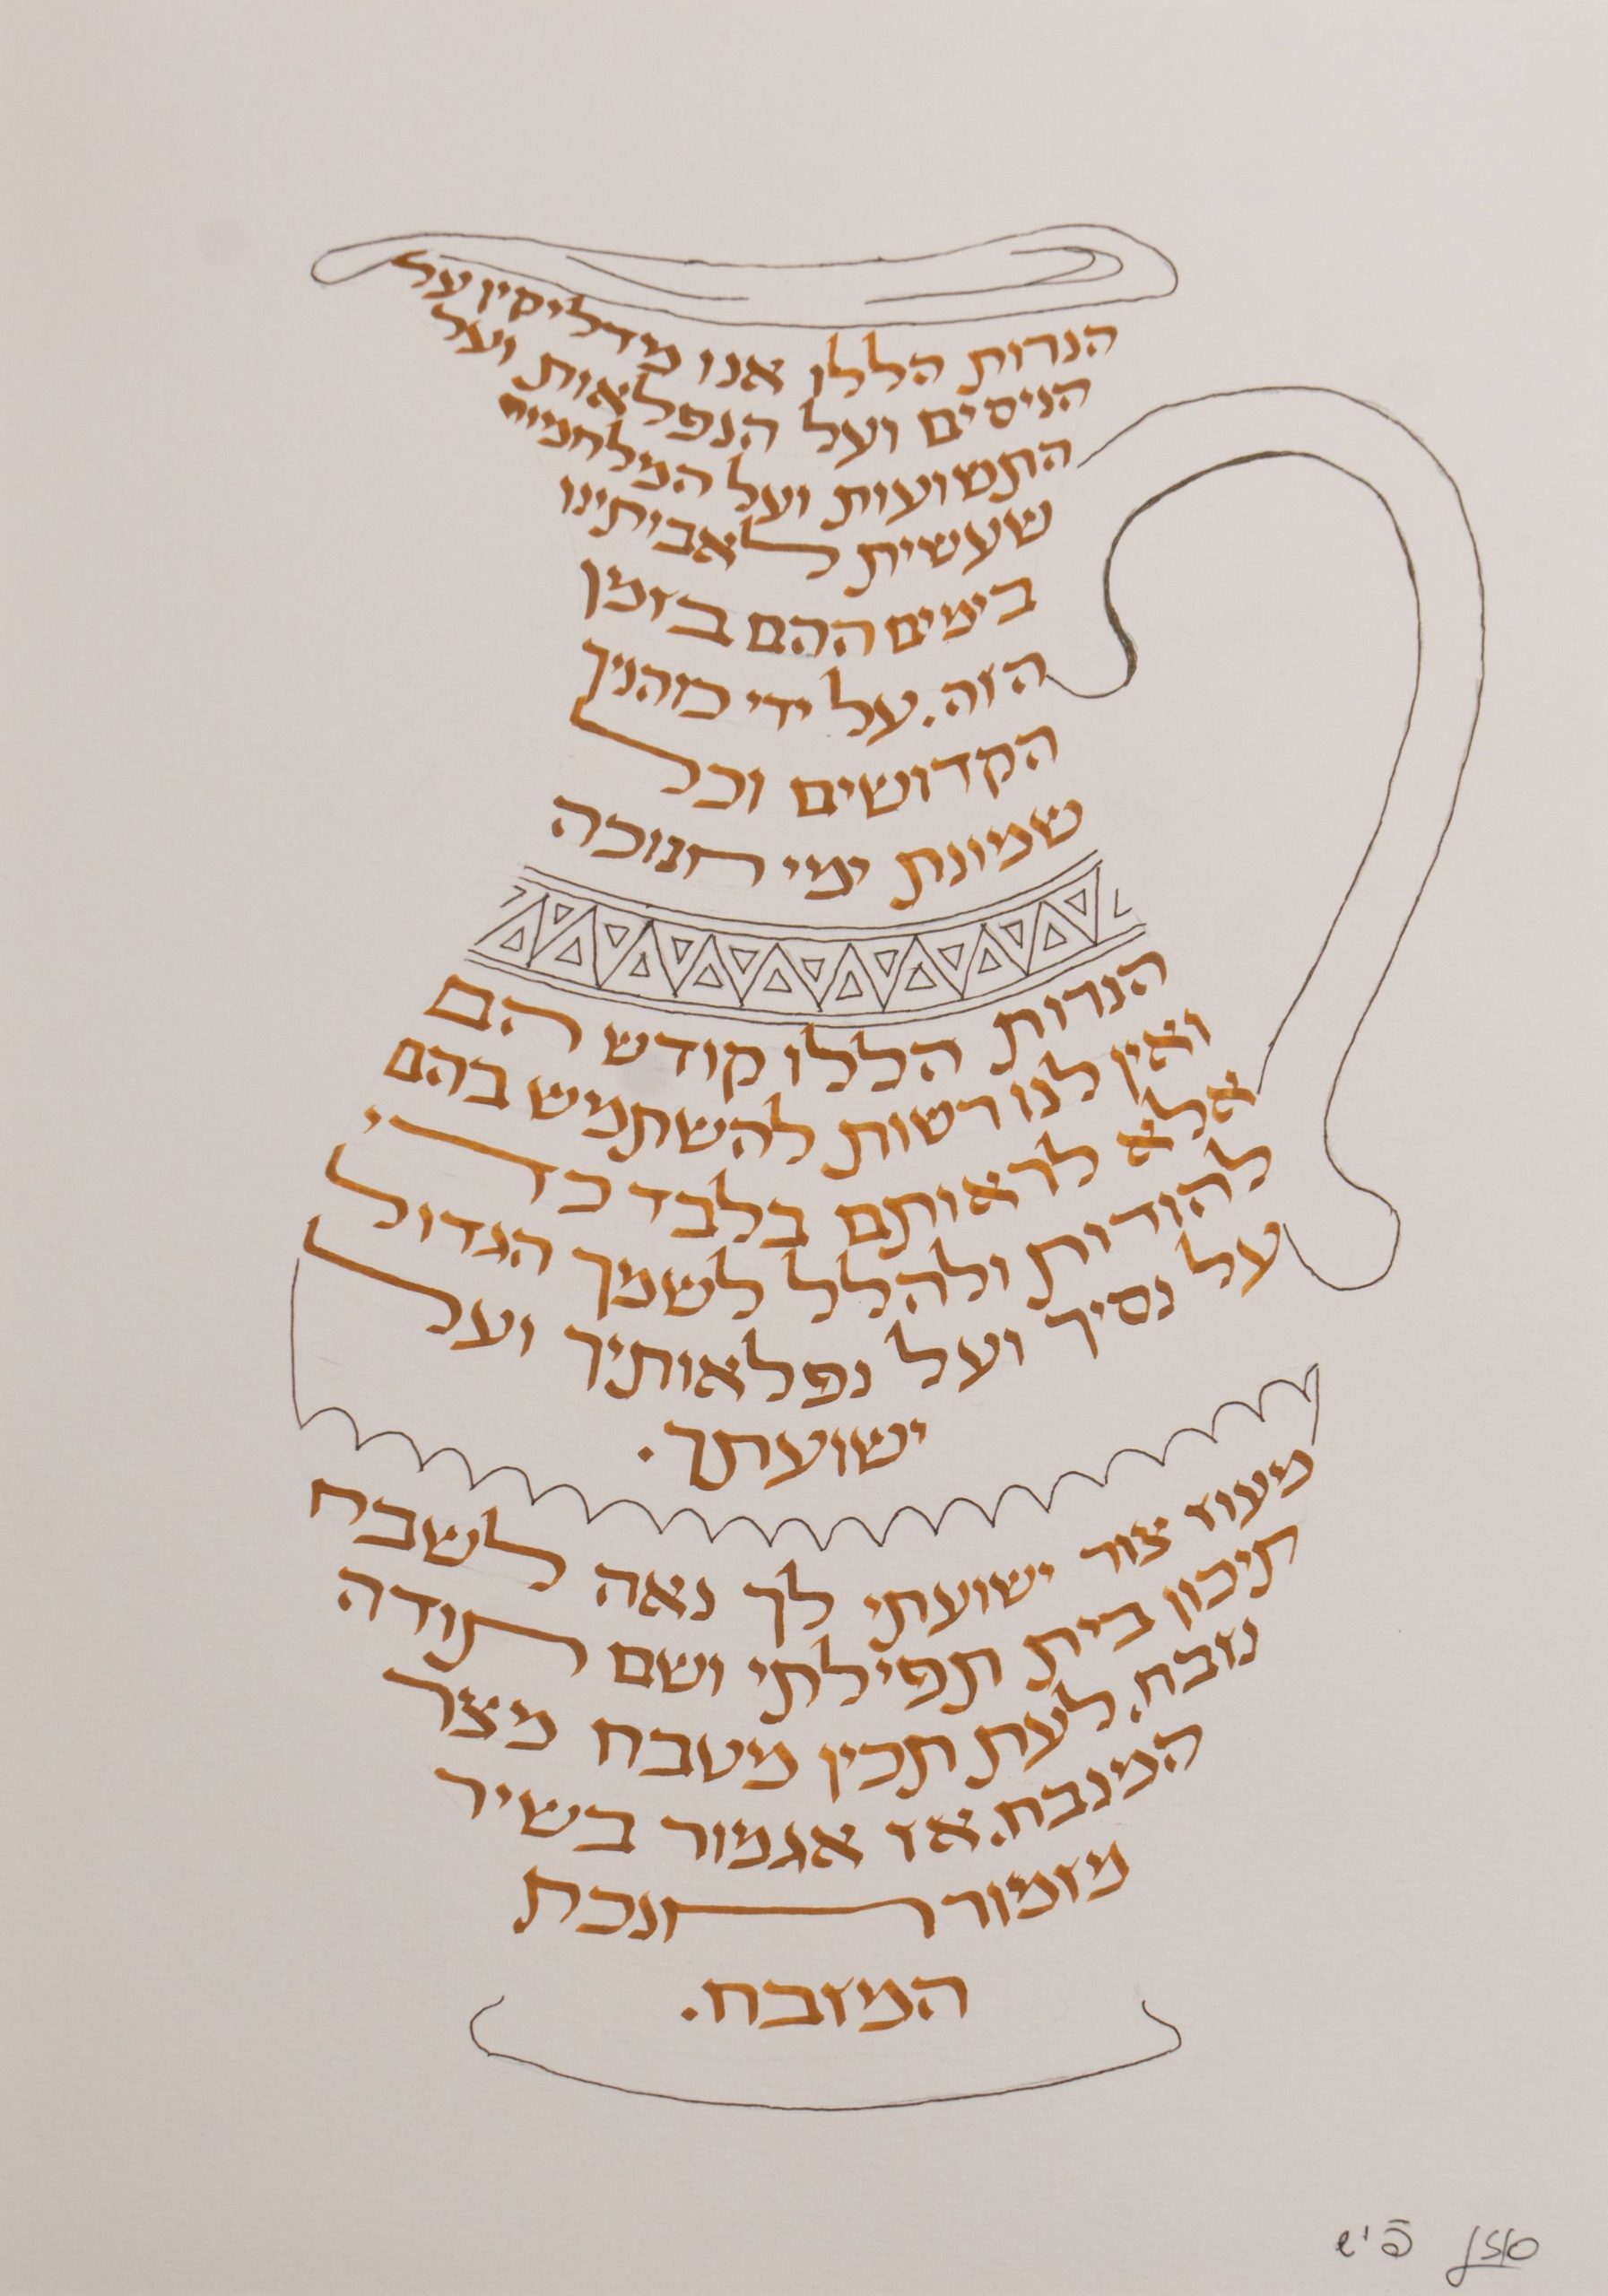 הנרות הללו אנו מדליקין על
הניסים ועל הנפלאות ועל
התשועות ועל המלחמות
שעשית לאבותינו
בימים ההם בזמן
הזה. על ידי כוהניך
הקדושים וכל
שמונת ימי חנוכה
הנרות הללו קודש הם
ואין לנו רשות להשתמש בהם
אלא לראותם בלבד כדי
להודות ולהלל לשמך הגדול
על נסיך ועל נפלאותיך ועל
ישועתך.
מעוז צור ישועתי לך נאה לשבח
תיכון בית תפילתי ושם תודה
נזבח. לעת תכין מטבח מצר
המנבח. אז אגמור בשיר
מזמור חנכת
המזבח.
סוזן פיש